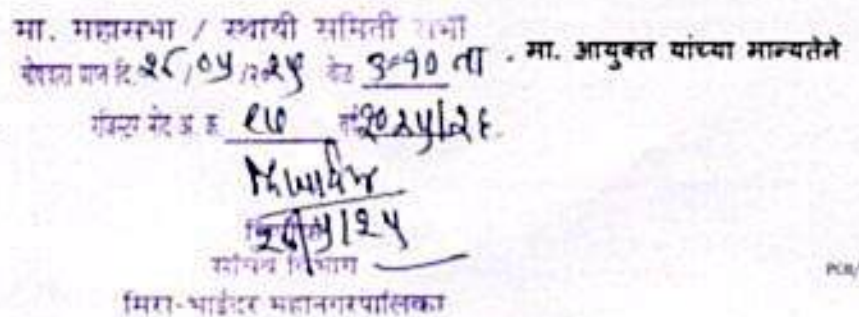 मा. महासभा / स्थायी समिती सभा
दि. २८/०५/२०२५ वेळ ३=१० ता . मा. आयुक्त यांच्या मान्यतेने
रजिस्टर नोंद अ. क्र. २०२५/२६.
२८/५/२५
सचिव विभाग
मिरा-भाईंदर महानगरपालिका